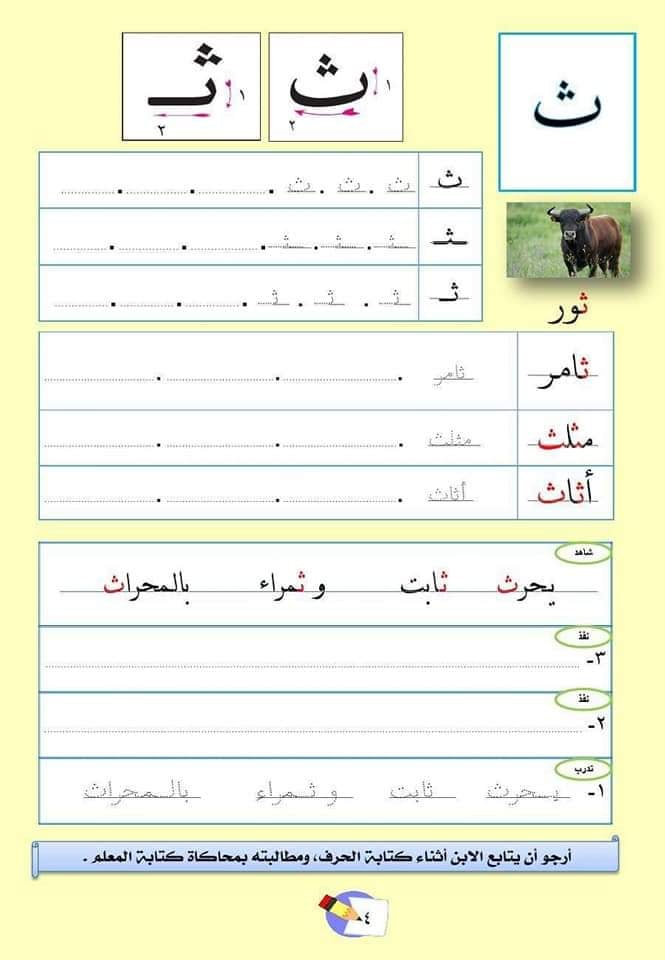 ث
ث ١ ٢
ثـ ١ ٢
ث ث . ث . ث . . .
ـثـ ـثـ . ـثـ . ـثـ . . .
ثـ ثـ . ثـ . ثـ . . .
ثور
ثامر ثامر . . .
مثلث مثلث . . .
أثاث أثاث . . .
شاهد
يحرث ثابت و ثمراء بالمحراث
نفذ
٣-
نفذ
٢-
تدرب
١- يـحرث ثابت و ثـمراء بالـمحراث
أرجو أن يتابع الابن أثناء كتابة الحرف، ومطالبته بمحاكاة كتابة المعلم .
٤